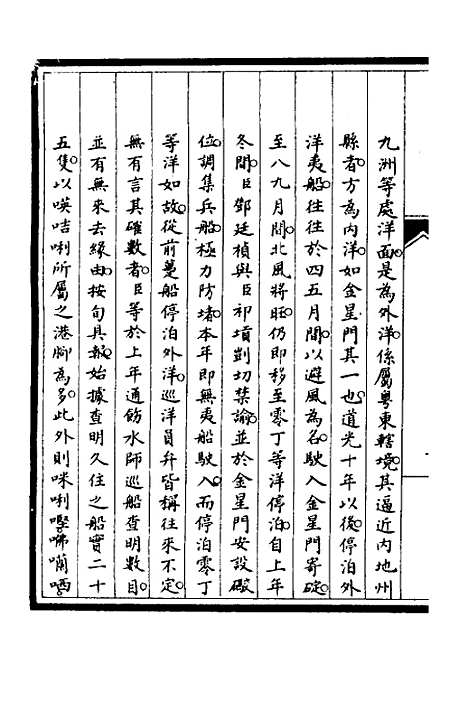 九洲等處洋面是為外洋係屬粵東轄境其逼近內地州
縣者方為內洋如金星門其一也道光十年以後停泊外
洋夷船往往於四五月間以避風為名駛入金星門寄碇
至八九月間北風將旺仍即移至零丁等洋停泊自上年
冬間臣鄧廷楨與臣祁𡎴剴切禁諭並於金星門安設礮
位調集兵船極力防堵本年即無夷船駛入而停泊零丁
等洋如故從前躉船停泊外洋巡洋員弁皆稱往來不定
無有言其確數者臣等於上年通飭水師巡船查明數目
並有無來去緣由按旬具報始據查明久住之船實二十
五隻以𠸄咭唎所屬之港腳為多此外則咪唎㗷㖇囒哂